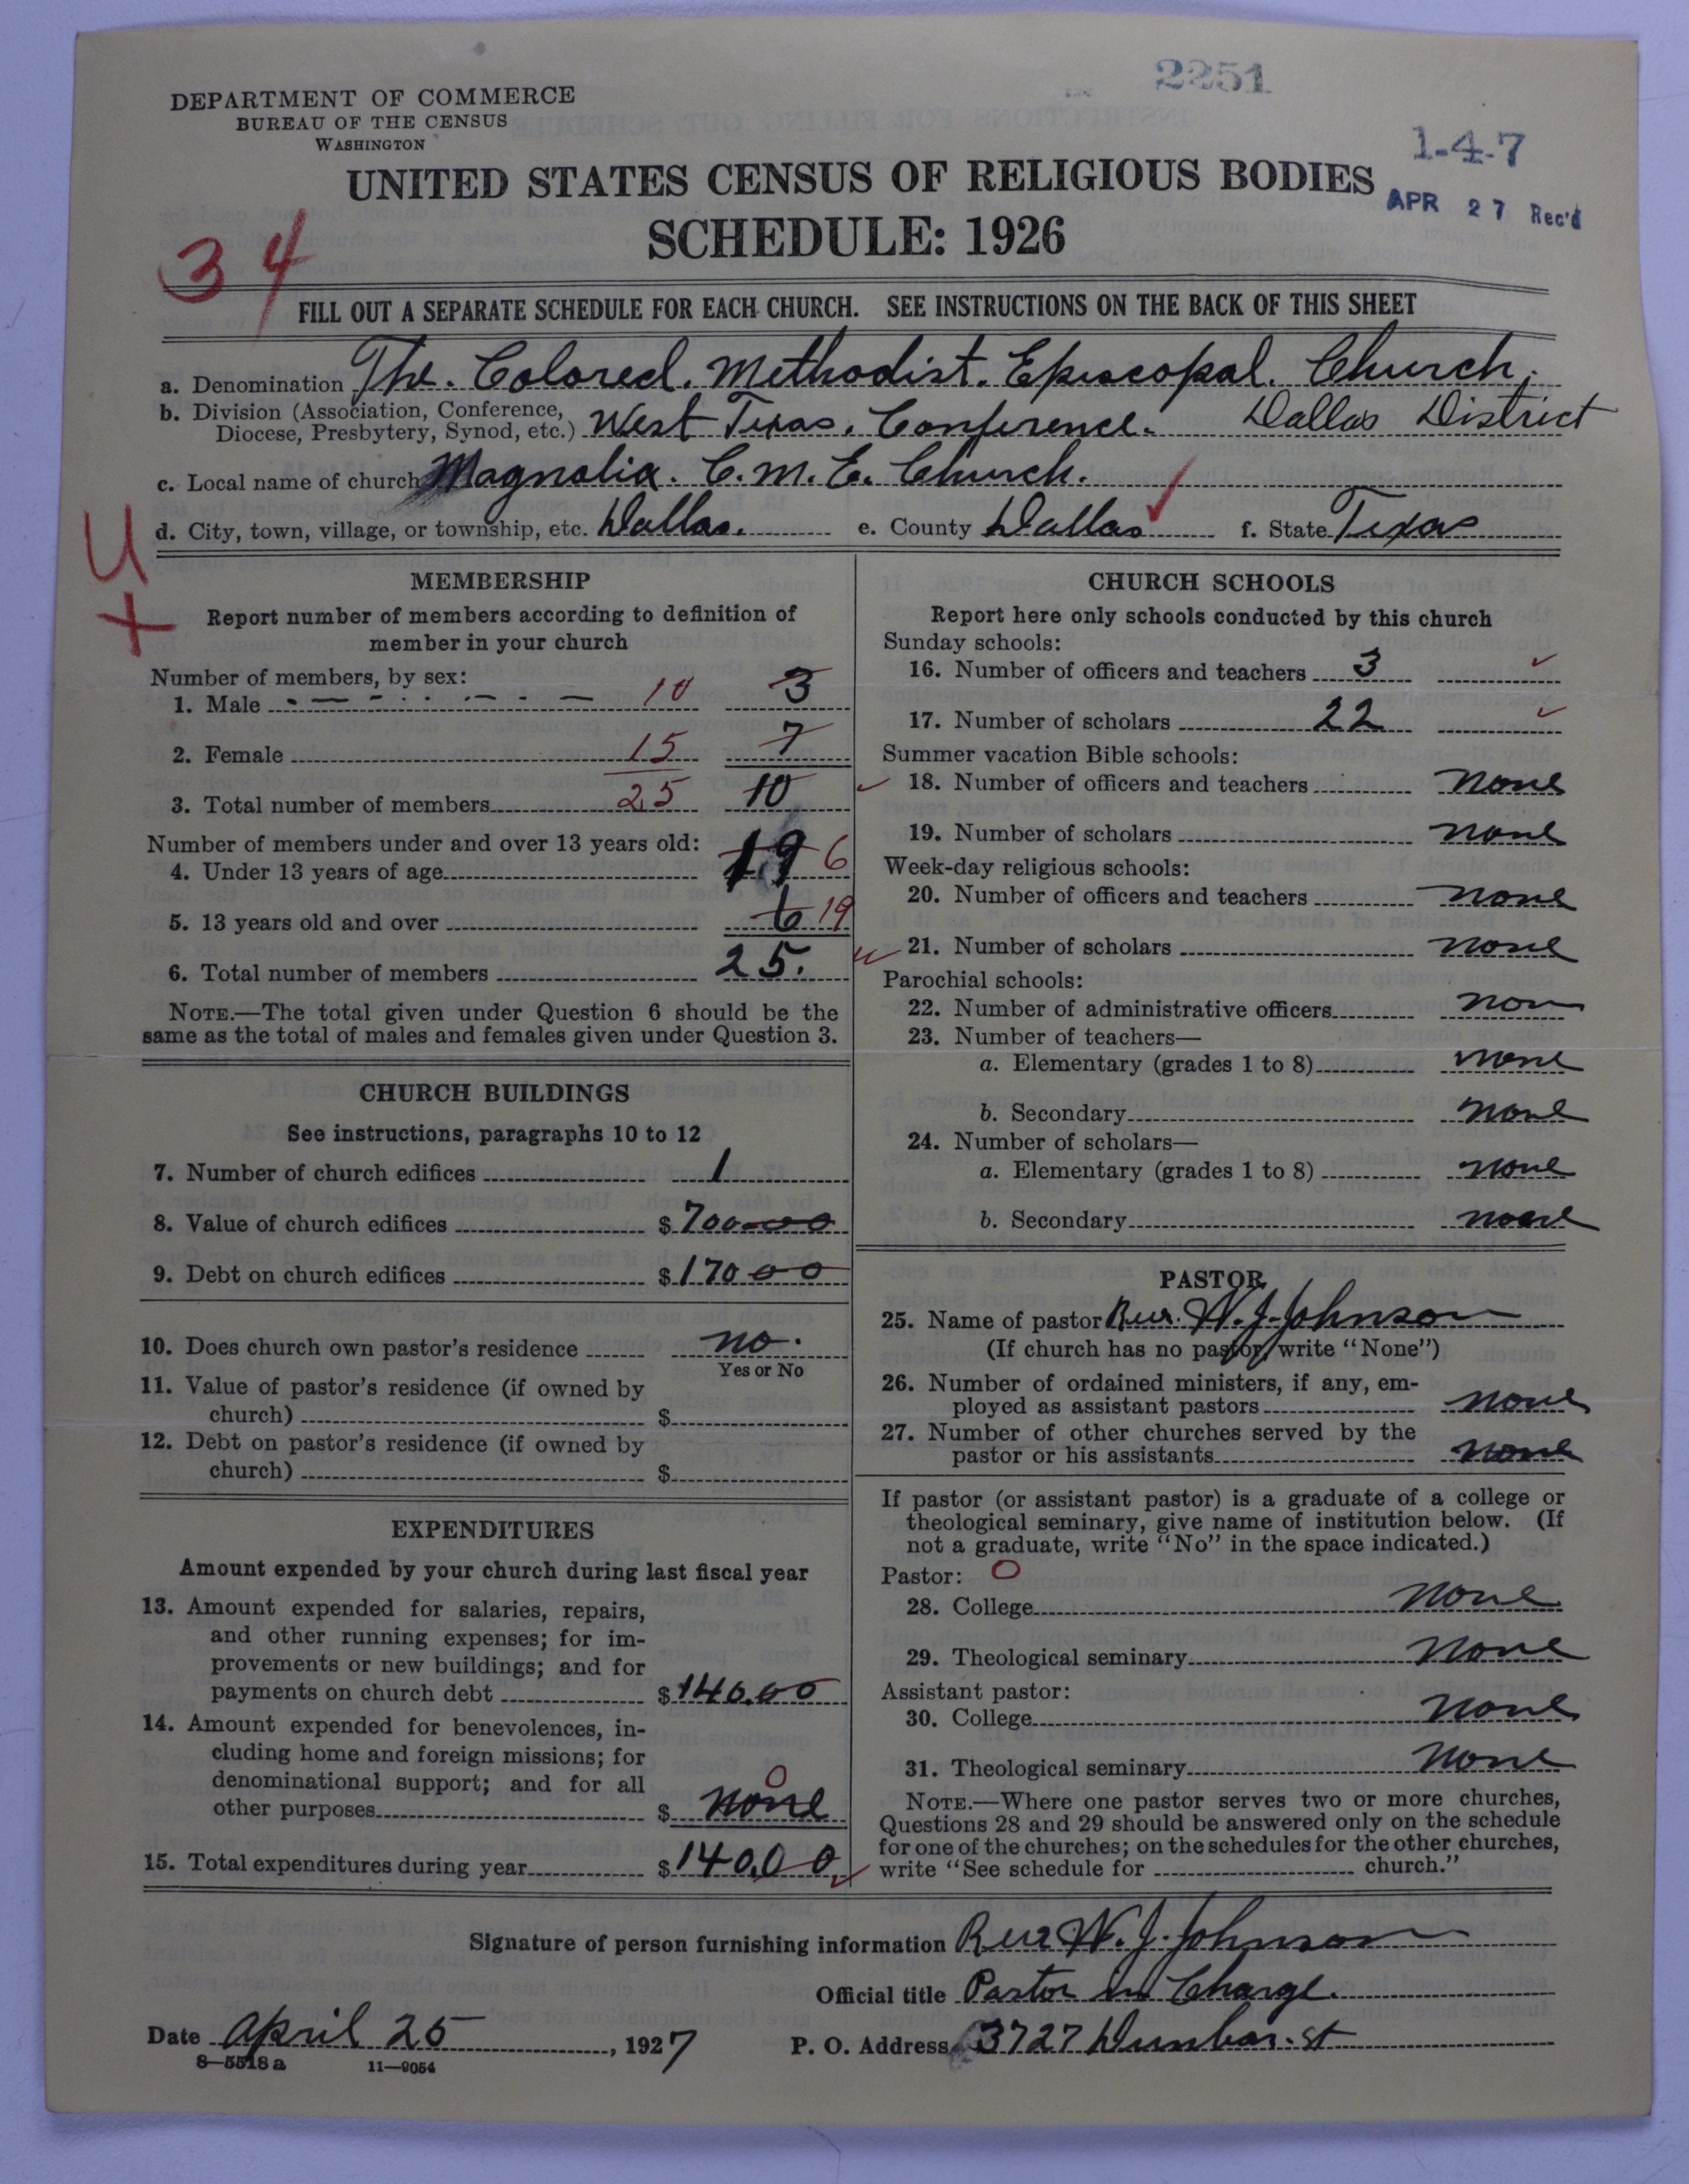 2251
DEPARTMENT OF COMMERCE
BUREAU OF THE CENSUS
WASHINGTON
1-4-7
UNITED STATES CENSUS OF RELIGIOUS BODIES
APR 27 Rec'd
SCHEDULE: 1926
34
FILL OUT A SEPARATE SCHEDULE FOR EACH CHURCH. SEE INSTRUCTIONS ON THE BACK OF THIS SHEET
a. Denomination The. Colored. Methodist. Episcopal. Church.
b. Division (Association, Conference, Diocese, Presbytery, Synod, etc.) West Texas. Conference. Dallas District
c. Local name of church Magnolia. C. M. E. Church.
d. City, town, village, or township, etc. Dallas. e. County Dallas f. State Texas
U
+
MEMBERSHIP
Report number of members according to definition of
member in your church
Number of members, by sex:
1. Male 10 3
2. Female 15 7
3. Total number of members 25 10
Number of members under and over 13 years old:
4. Under 13 years of age 19 6
5. 13 years old and over 6 19
6. Total number of members 25.
NOTE.—The total given under Question 6 should be the
same as the total of males and females given under Question 3.
CHURCH BUILDINGS
See instructions, paragraphs 10 to 12
7. Number of church edifices 1
8. Value of church edifices $ 700.00
9. Debt on church edifices $ 170 00
10. Does church own pastor's residence no.
Yes or No
11. Value of pastor's residence (if owned by
church) $
12. Debt on pastor's residence (if owned by
church) $
EXPENDITURES
Amount expended by your church during last fiscal year
13. Amount expended for salaries, repairs,
and other running expenses; for im-
provements or new buildings; and for
payments on church debt $ 140.00
14. Amount expended for benevolences, in-
cluding home and foreign missions; for
denominational support; and for all
other purposes $ none 0
15. Total expenditures during year $ 140.00
CHURCH SCHOOLS
Report here only schools conducted by this church
Sunday schools:
16. Number of officers and teachers 3
17. Number of scholars 22
Summer vacation Bible schools:
18. Number of officers and teachers none
19. Number of scholars none
Week-day religious schools:
20. Number of officers and teachers none
21. Number of scholars none
Parochial schools:
22. Number of administrative officers non
23. Number of teachers—
a. Elementary (grades 1 to 8) none
b. Secondary none
24. Number of scholars—
a. Elementary (grades 1 to 8) none
b. Secondary none
PASTOR
25. Name of pastor Rev. W. J. Johnson
(If church has no pastor, write "None")
26. Number of ordained ministers, if any, em-
ployed as assistant pastors none
27. Number of other churches served by the
pastor or his assistants none
If pastor (or assistant pastor) is a graduate of a college or
theological seminary, give name of institution below. (If
not a graduate, write "No" in the space indicated.)
Pastor: 0
28. College none
29. Theological seminary none
Assistant pastor:
30. College none
31. Theological seminary none
NOTE.—Where one pastor serves two or more churches,
Questions 28 and 29 should be answered only on the schedule
for one of the churches; on the schedules for the other churches,
write "See schedule for church."
Signature of person furnishing information Rev W. J. Johnson
Official title Pastor in Charge.
Date April 25, 1927 P. O. Address 3727 Dunbar. st
8—5518 a 11—9054